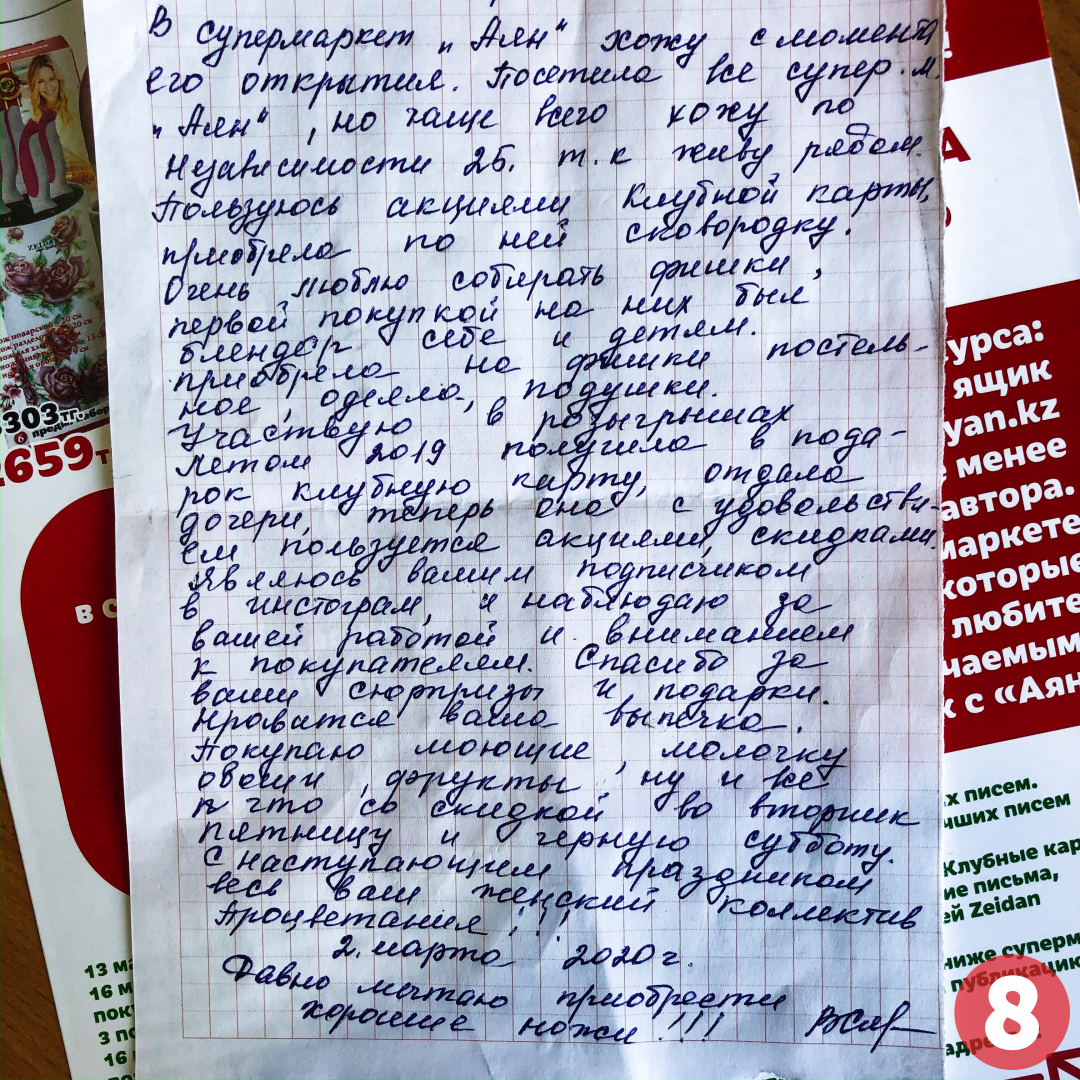 В супермаркет „Аян" хожу с момента
его открытия. Посетила все супер.м.
„Аян", но чаще всего хожу по
Независимости 25. т.к живу рядом.
Пользуюсь акциями клубной карты,
приобрела по ней сковородку.
Очень люблю собирать фишки,
первой покупкой на них был
блендер себе и детям.
приобрела на фишки постель-
ное, одеяло, подушки.
Участвую в розыгрышах
летом 2019 получила в пода-
рок клубную карту, отдала
дочери, теперь она с удовольстви-
ем пользуется акциями, скидками.
Являюсь вашим подписчиком
в инстограм, и наблюдаю за
вашей работой и вниманием
к покупателям. Спасибо за
ваши сюрпризы и подарки.
Нравится ваша выпечка.
Покупаю моющие, молочку
овощи, фрукты, ну и все
что со скидкой во вторник
пятницу и черную субботу.
С наступающим праздником
весь ваш женский коллектив
Процветания!!!
2. марта 2020 г.
Давно мечтаю приобрести
хорошие ножи!!!
ZEIDAN
303тг.
6 предм.
2659т
в с
13 ма
16 м
пок
3 по
16
урса:
ящик
yan.kz
менее
автора.
маркете
которые
любите
чаемым
с «Аян
х писем.
чших писем
Клубные кар
ие письма,
ей Zeidan
ниже суперм
публикацию
адре
8